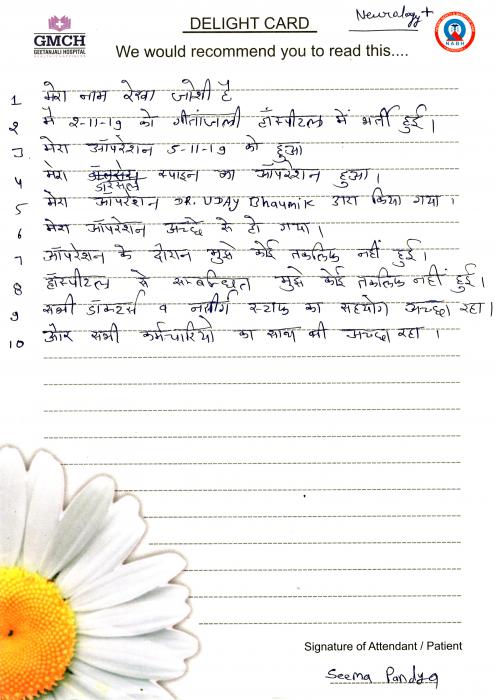 DELIGHT CARD
Neurology +
GMCH
GEETANJALI HOSPITAL
NABH
We would recommend you to read this....
1 मेरा नाम रेखा जोशी है
2 मैं 2-11-19 को गीतांजली हॉस्पीटल में भर्ती हुई।
3. मेरा ऑपरेशन 5-11-19 को हुआ
4 मेरा डोरसल स्पाइन का ऑपरेशन हुआ।
5 मेरा ऑपरेशन DR. UDAY Bhaumik द्वारा किया गया।
6 मेरा ऑपरेशन अच्छे से हो गया।
7 ऑपरेशन के दौरान मुझे कोई तकलिफ नहीं हुई।
8 हॉस्पीटल से सम्बन्धित मुझे कोई तकलिफ नहीं हुई।
9 सभी डॉक्टर्स व नर्सींग स्टाफ का सहयोग अच्छा रहा।
10 और सभी कर्मचारियो का साथ भी अच्छा रहा।
Signature of Attendant / Patient
Seema Pandya